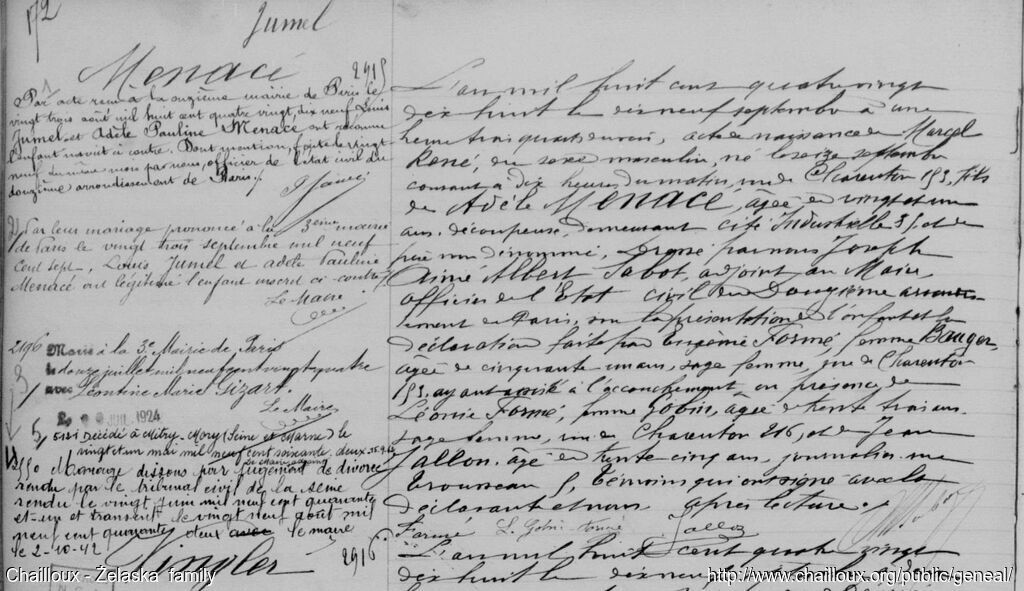 172
Jumel
Menacé
2915
Par acte reçu à la onzième mairie de Paris le
vingt trois août mil huit cent quatre vingt dix neuf, Louis
Jumel et Adèle Pauline Menacé ont reconnu
l'enfant inscrit ci contre. Dont mention, faite le vingt
neuf du même mois par nous, officier de l'état civil du
douzième arrondissement de Paris.
Par leur mariage prononcé à la 3eme mairie
de Paris le vingt trois septembre mil neuf
cent sept, Louis Jumel et adèle Pauline
Menacé ont légitimé l'enfant inscrit ci contre
Le Maire
2196
Marié à la 3e Mairie de Paris
le douze juillet mil neuf cent vingt quatre
avec Léontine Marie Gizart.
Le Maire
1924
5151 Décédé à Mitry-Mory (Seine et Marne) le
vingt et un mai mil neuf cent soixante deux
Mariage dissous par jugement de divorce
rendu par le tribunal civil de la Seine
rendu le vingt juin mil neuf cent quarante
et un et transcrit le vingt neuf août mil
neuf cent quarante deux le maire
le 2-10-42
L'an mil huit cent quatre vingt
dix huit le dix neuf septembre à une
heure trois quarts du soir, acte de naissance de Marcel
René, du sexe masculin, né le seize septembre
courant à dix heures du matin, rue de Charenton 193, fils
de Adèle Menacé, âgée de vingt et un
ans, découpeuse, demeurant cité Industrielle 31, et de
père non dénommé, Dressé par nous Joseph
Aimé Albert Sabot, adjoint au Maire,
officier de l'Etat civil du Douzième arrondis-
sement de Paris, sur la présentation de l'enfant et la
déclaration faite par Eugénie Formé, femme Bauger,
âgée de cinquante un ans, sage femme, rue de Charenton
193, ayant assisté à l'accouchement en présence de
Léonie Formé, femme Gobin, âgée de trente trois ans,
sage femme, rue de Charenton 216, et de Jean
Jallon, âgé de trente cinq ans, journalier rue
Trousseau 9, témoins qui ont signé avec la
déclarante et nous après lecture.
L. Gobin
Jallon
2916
L'an mil huit cent quatre vingt
dix huit le dix neuf
Chailloux - Żelaska family
http://www.chailloux.org/public/geneal/